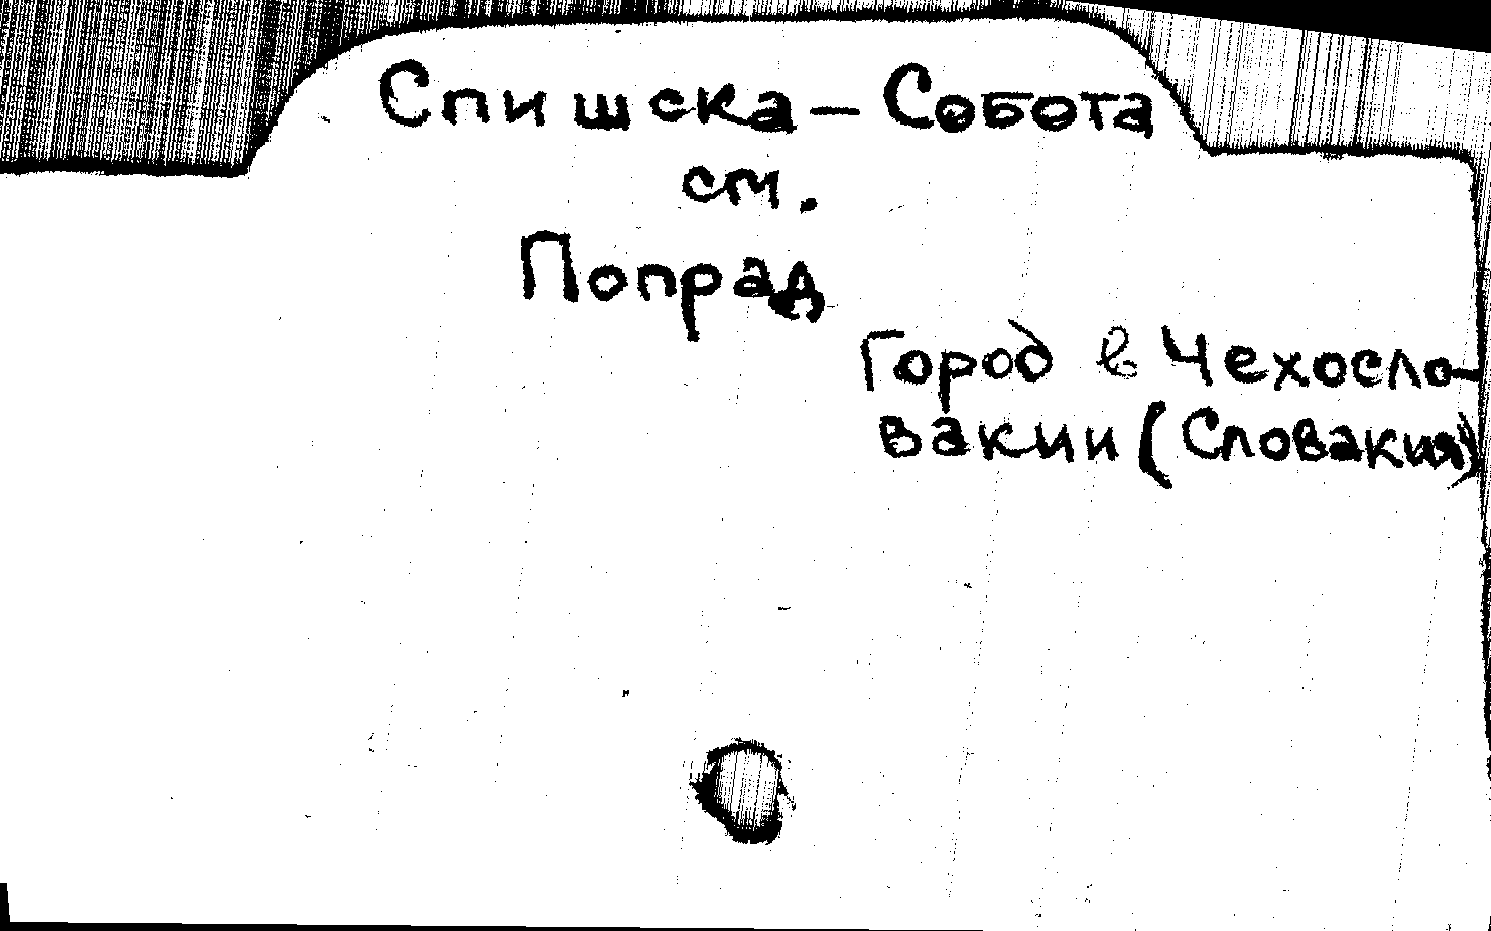 Спишска-Собота
см.
Попрад
Город в Чехосло-
вакии (Словакия)